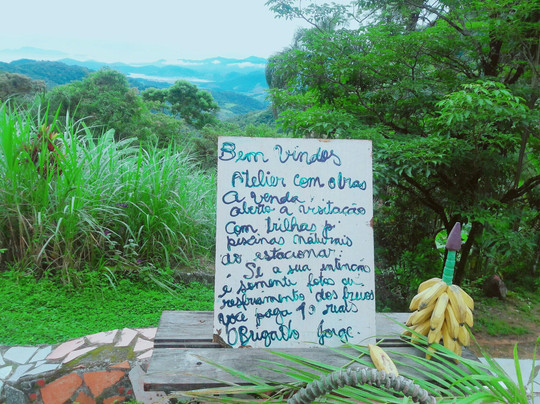 Bem Vindos
Atelier com obras
A venda
aberto a visitação
com trilhas p/
piscinas naturais
do estacionar.
Se a sua intenção
é somente fotos ou
você paga 10 reais
OBRIGADO Jorge